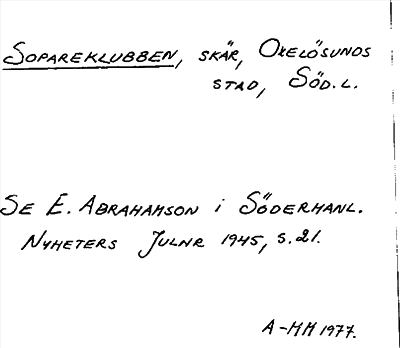 SOPAREKLUBBEN, SKÄR, OXELÖSUNDS
STAD, SÖD.L.
SE E. ABRAHAMSON i SÖDERMANL.
NYHETERS JULNR 1945, S.21.
A-MM 1977.